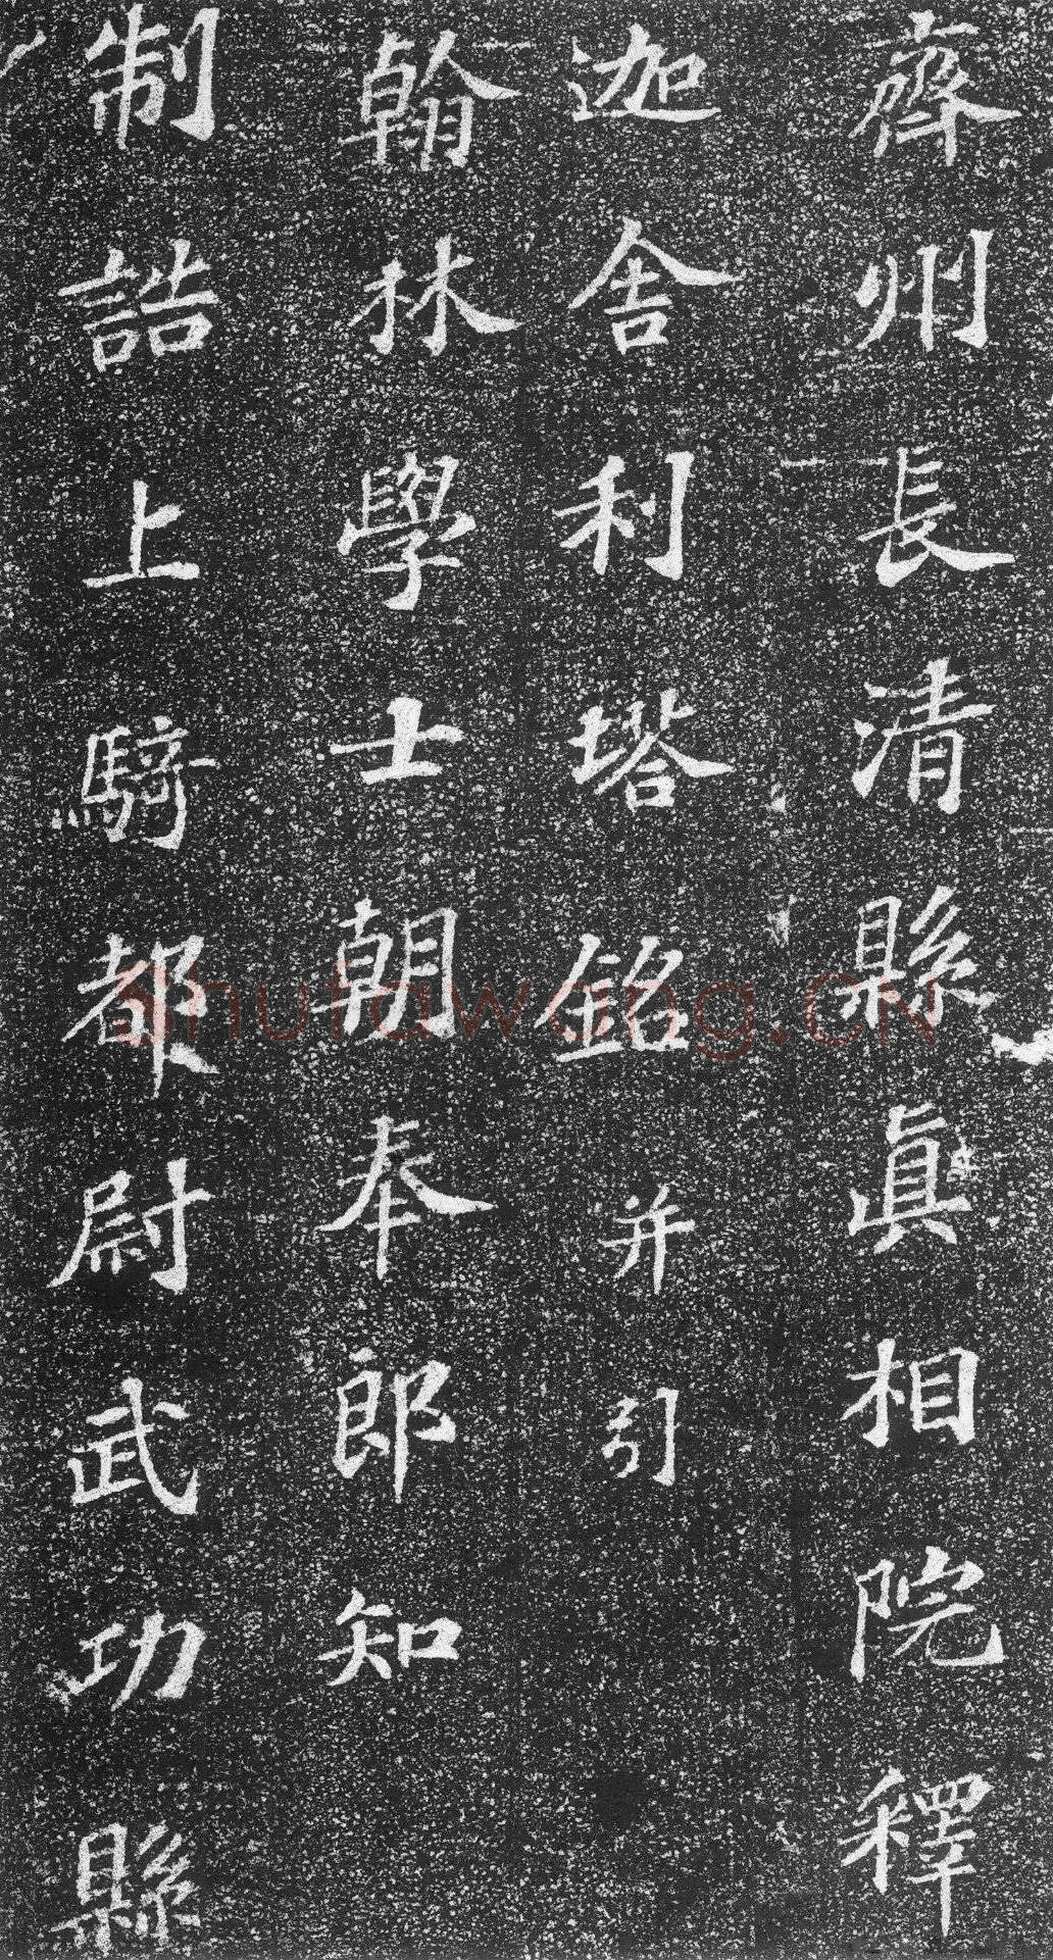 齊州長清縣真相院釋
迦舍利塔銘并引
翰林學士朝奉郎知
制誥上騎都尉武功縣
Shufawang.CN